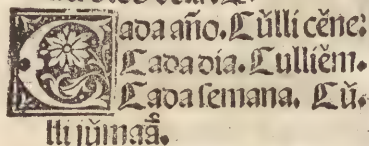 Cada año. Cŭlli cĕne:
Cada dia. Culliĕm.
Cada semana. Cŭ.
lli jŭmaâ.